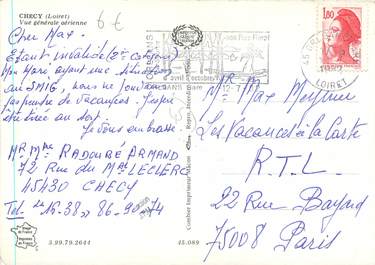 CHECY (Loiret)
Vue générale aérienne
6 €
Cher Max.
Etant invalide (2e catégorie)
Mon Mari ayant une situation
au SMIG, nous ne pouvons
pas prendre de vacances. J'espère
être tirée au sort.
Je vous embrasse.
Mr Mme RADOUBÉ ARMAND
72 Rue du Mal LECLERC
45430 CHECY
Tel. 15.38 86-90-74
3.99.79.2644
45.089
Combier Imprimeur Mâcon
1,80
LIRET
Mr Max Meynier
Les Vacances à la Carte
R.T.L.
22 Rue Bayard
75008 Paris